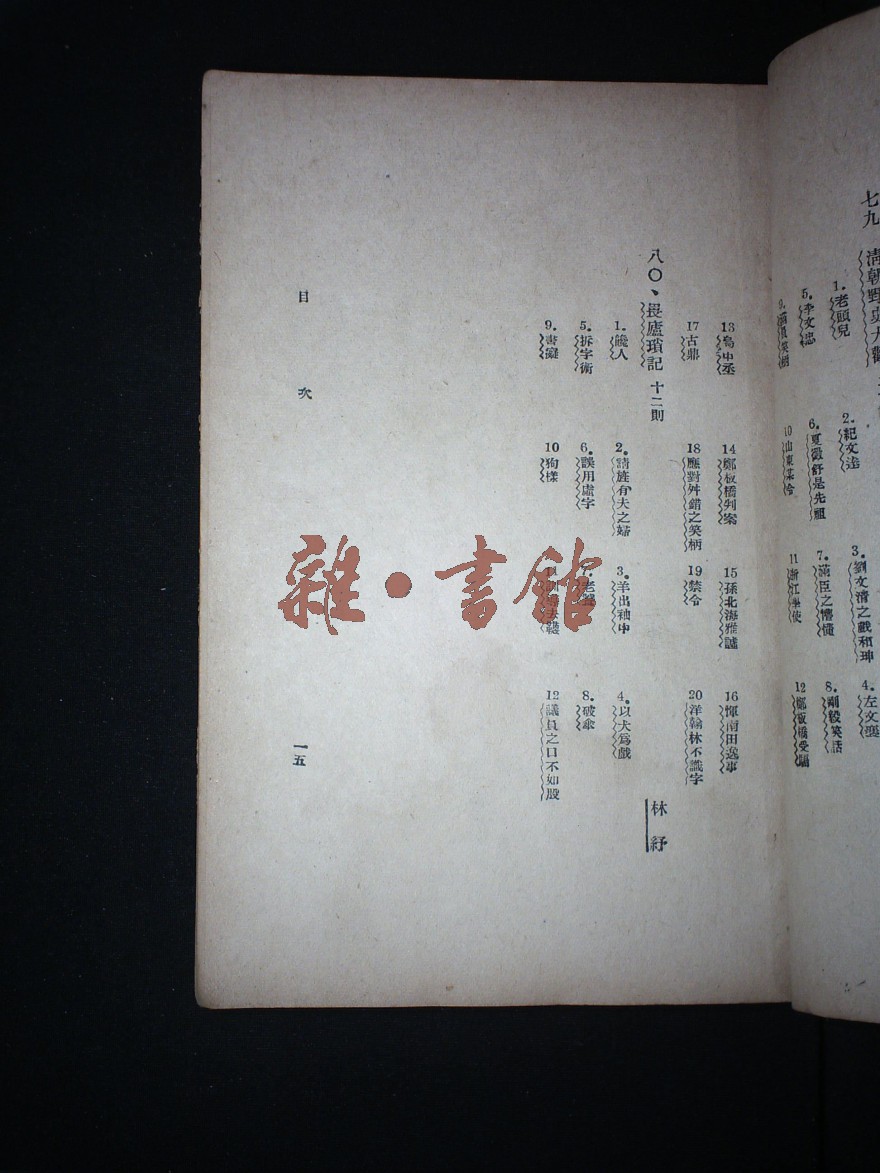 七九、清朝野史大觀
1. 老頭兒
2. 紀文達
3. 劉文清之戲和珅
4. 左文襄
5. 李文忠
6. 夏徵舒是先祖
7. 滿臣之懵懂
8. 剛毅笑話
10 山東某令
11 浙江學使
12 鄭板橋受騙
13
14 鄭板橋判案
15 孫北海雅謔
16 惲南田逸事
17 古鼎
18 應對舛錯之笑柄
19 禁令
20 洋翰林不識字
八〇、畏廬瑣記 十二則
林紓
1. 饞人
2. 請旌有夫之婦
3. 羊出袖中
4. 以犬爲戲
5. 拆字術
6. 誤用虛字
7. 老
8. 破傘
9. 書癡
10 狗樣
12 議員之口不如股
目次
一五
雜·書館